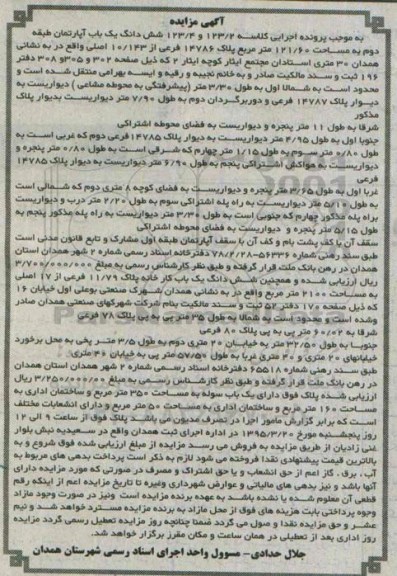 آگهی مزایده
به موجب پرونده اجرایی کلاسه ۱۲۳/۲ و ۱۲۳/۴ شش دانگ یک باب آپارتمان طبقه
دوم به مساحت ۱۲۱/۶۰ متر مربع پلاک ۱۴۷۸۶ فرعی از ۱۰/۱۴۳ اصلی واقع در به نشانی
همدان ۳۰ متری استادان مجتمع ایثار کوچه ایثار ۲ که ذیل صفحه ۳۰۲ و ۳۰۵ و ۳۰۸ دفتر
۱۹۶ ثبت و سند مالکیت صادر و به خانم نجیبه و رقیه و ایسه بهرامی منتقل شده است و
محدود است به شمالا اول به طول ۳/۳۰ متر (پیشرفتگی به محوطه مشاعی) دیواریست به
دیوار پلاک ۱۴۷۸۷ فرعی و دوربرگردان دوم به طول ۷/۹۰ متر دیواریست بدیوار پلاک
مذکور
شرقا به طول ۱۱ متر پنجره و دیواریست به فضای محوطه اشتراکی
جنوبا اول به طول ۴/۹۵ متر دیواریست به دیوار پلاک ۱۴۷۸۵ فرعی دوم که غربی است به
طول ۰/۸۰ متر سوم به طول ۱/۱۵ متر چهارم که شرقی است به طول ۰/۸۰ متر پنجره و
دیواریست به هواکش اشتراکی پنجم به طول ۶/۹۰ متر دیواریست به دیوار پلاک ۱۴۷۸۵
فرعی
غربا اول به طول ۳/۶۵ متر پنجره و دیواریست به فضای کوچه ۸ متری دوم که شمالی است
به طول ۵/۱۰ متر دیواریست به راه پله اشتراکی سوم به طول ۲/۲۰ متر درب و دیواریست
براه پله مذکور چهارم که جنوبی است به طول ۳/۳۰ متر دیواریست به راه پله مذکور پنجم به
طول ۵/۱۵ متر پنجره و دیواریست به فضای محوطه اشتراکی
سقف آن با کف پشت بام و کف آن با سقف آپارتمان طبقه اول مشارک و تابع قانون مدنی است
طبق سند رهنی شماره ۵۶۳۳۶-۷۸/۲/۲۸ دفترخانه اسناد رسمی شماره ۲ شهر همدان استان
همدان در رهن بانک ملت قرار گرفته و طبق نظر کارشناس رسمی به مبلغ ۳/۷۰۰/۰۰۰/۰۰۰
ریال ارزیابی شده و همچنین شش دانگ یک باب کار خانه پلاک ۱۱/۷۹ فرعی از ۱۷ اصلی
به مساحت ۲۱۰۰ متر مربع واقع در به نشانی همدان شهرک صنعتی بوعلی اول خیابان ۱۶
که ذیل صفحه ۱۷۰ دفتر ۵۲ ثبت و سند مالکیت بنام شرکت شهرکهای صنعتی همدان صادر
وشده است و محدود است به شمالا به طول ۳۵ متر پی به پی پلاک ۷۸ فرعی
شرقا به ۶۰/۰۲ متر پی به پی پلاک ۸۰ فرعی
جنوبا به طول ۳۲/۵۰ متر به خیابان ۲۰ متری دوم به طول ۳/۵ متر پخی به محل برخورد
خیابانهای ۲۰ متری و ۴۰ متری غربا به طول ۵۷/۵۰ متر پی به خیابان ۴۶ متری
طبق سند رهنی شماره ۶۵۵۱۸ دفترخانه اسناد رسمی شماره ۲ شهر همدان استان همدان
در رهن بانک ملت قرار گرفته و طبق نظر کارشناس رسمی به مبلغ ۳/۲۵۰/۰۰۰/۰۰۰ ریال
ارزیابی شده پلاک فوق دارای یک باب سوله به مساحت ۳۵۰ متر مربع و ساختمان اداری به
مساحت ۱۶۰ متر مربع و ساختمان اداری به مساحت ۵۰ متر مربع و دارای انشعابات مختلف
است که برابر گزارش مامور اجرا در تصرف مدیون می باشد پلاک فوق از ساعت ۹ الی ۱۲
روز پنجشنبه مورخ ۱۳۹۵/۳/۲۰ در اداره اجرای ثبت همدان واقع در سعیدیه نبش بلوار
غنی زادیان از طریق مزایده به فروش می رسد مزایده از مبلغ ارزیابی شده فوق شروع و به
بالاترین قیمت پیشنهادی نقدا فروخته می شود لازم به ذکر است پرداخت بدهی های مربوط به
آب، برق، گاز اعم از حق انشعاب و یا حق اشتراک و مصرف در صورتی که مورد مزایده دارای
آنها باشد و نیز بدهی های مالیاتی و عوارض شهرداری وغیره تا تاریخ مزایده اعم از اینکه رقم
قطعی آن معلوم شده یا نشده باشد به عهده برنده مزایده است ونیز در صورت وجود مازاد
وجوه پرداختی بابت هزینه های فوق از محل مازاد به برنده مزایده مسترد خواهد شد و نیم
عشر و حق مزایده نقدا وصول می گردد ضمنا چنانچه روز مزایده تعطیل رسمی گردد مزایده
روز اداری بعد از تعطیلی در همان ساعت و مکان مقرر برگزار خواهد شد.
جلال حدادی- مسوول واحد اجرای اسناد رسمی شهرستان همدان